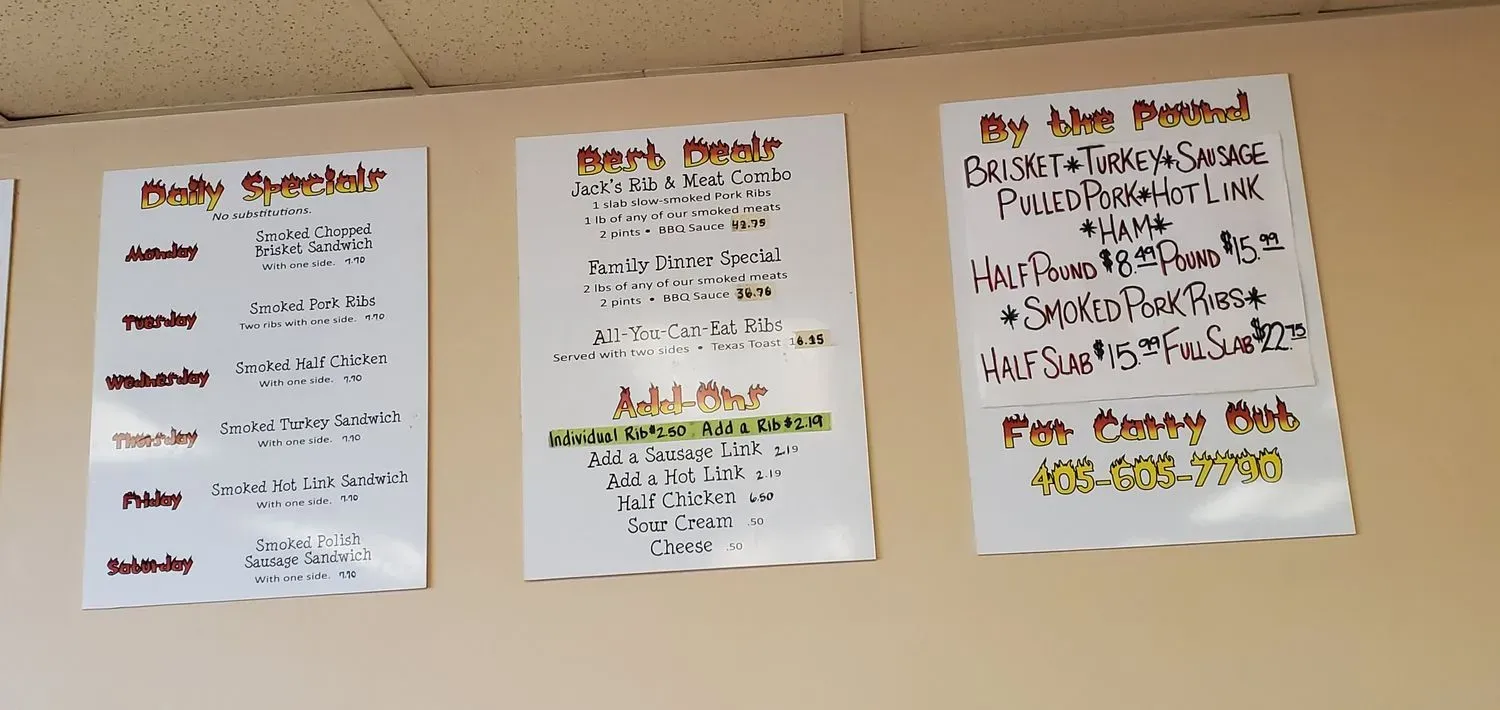 Daily Specials
No substitutions.
Monday
Smoked Chopped
Brisket Sandwich
With one side. 7.70
Tuesday
Smoked Pork Ribs
Two ribs with one side. 7.70
Wednesday
Smoked Half Chicken
With one side. 7.70
Thursday
Smoked Turkey Sandwich
With one side. 7.70
Friday
Smoked Hot Link Sandwich
With one side. 7.70
Saturday
Smoked Polish
Sausage Sandwich
With one side. 7.70
Best Deals
Jack's Rib & Meat Combo
1 slab slow-smoked Pork Ribs
1 lb of any of our smoked meats
2 pints • BBQ Sauce 42.75
Family Dinner Special
2 lbs of any of our smoked meats
2 pints • BBQ Sauce 36.76
All-You-Can-Eat Ribs
Served with two sides • Texas Toast 16.25
Add-Ons
Individual Rib $2.50 Add a Rib $2.19
Add a Sausage Link 2.19
Add a Hot Link 2.19
Half Chicken 6.50
Sour Cream .50
Cheese .50
By the Pound
BRISKET*TURKEY*SAUSAGE
PULLED PORK*HOT LINK
*HAM*
HALF POUND $8.49 POUND $15.99
*SMOKED PORK RIBS*
HALF SLAB $15.99 FULL SLAB $22.75
For Carry Out
405-605-7790